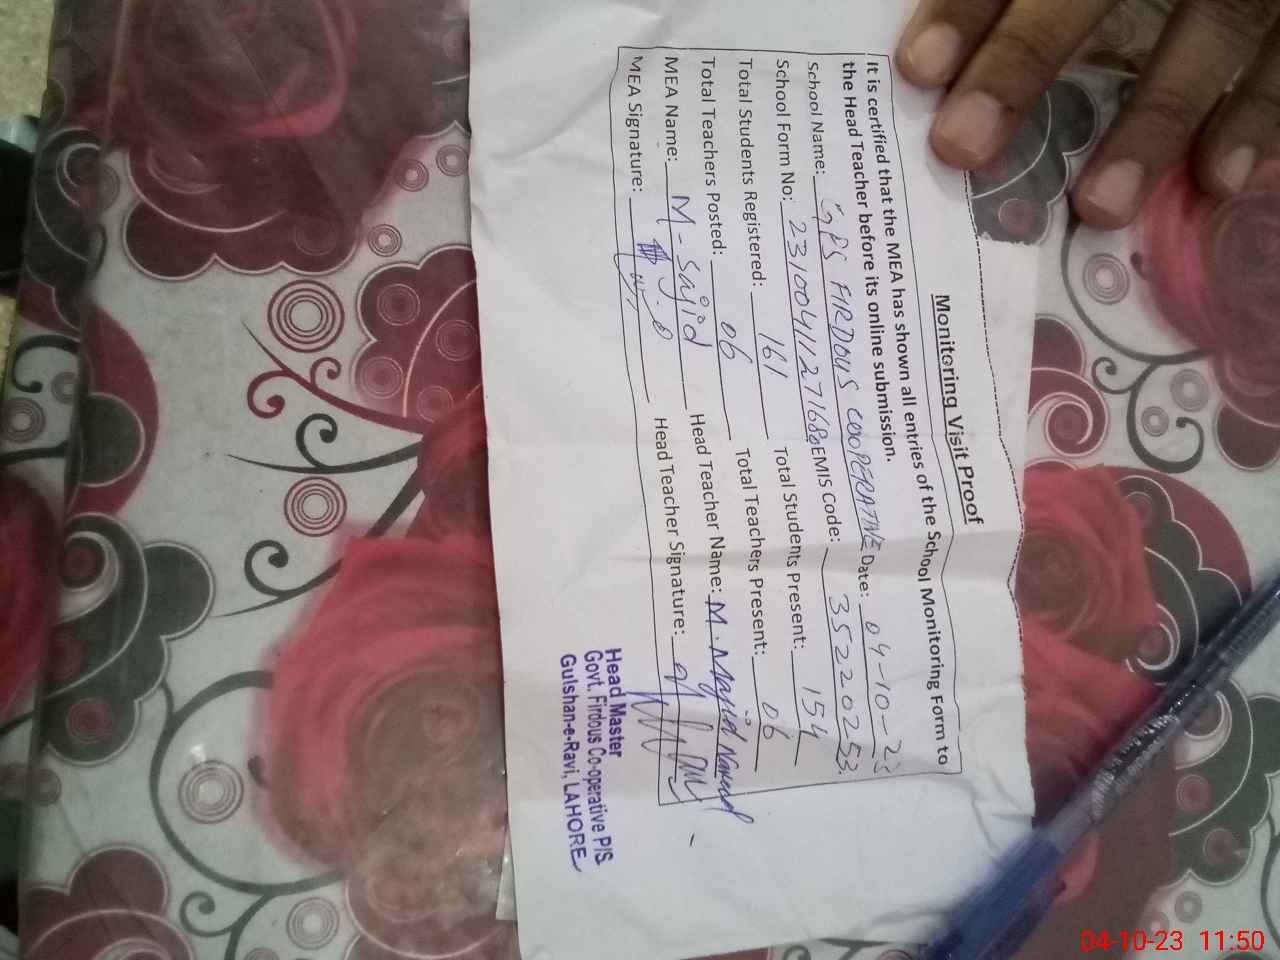 Monitoring Visit Proof
It is certified that the MEA has shown all entries of the School Monitoring Form to
the Head Teacher before its online submission.
School Name: GPS FIRDOUS COOPERATIVE Date: 04-10-23
School Form No: EMIS Code: 35220253
Total Students Registered: 161 Total Students Present: 154
Total Teachers Posted: 06 Total Teachers Present: 06
MEA Name: M-Sajid Head Teacher Name: M. Majid
MEA Signature: Head Teacher Signature:
Head Master
Govt. Firdous Co-operative P/S
Gulshan-e-Ravi, LAHORE
04-10-23 11:50